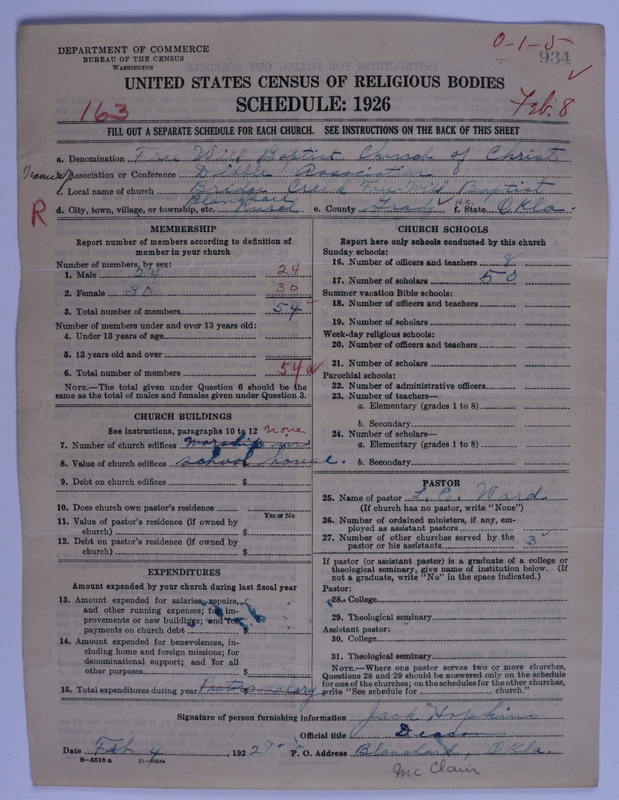 DEPARTMENT OF COMMERCE
BUREAU OF THE CENSUS
WASHINGTON
0-1-5
934
UNITED STATES CENSUS OF RELIGIOUS BODIES
SCHEDULE: 1926
163
Feb. 8
FILL OUT A SEPARATE SCHEDULE FOR EACH CHURCH. SEE INSTRUCTIONS ON THE BACK OF THIS SHEET
a. Denomination Free Will Baptist Church of Christ
Association or Conference Dibble Association
c. Local name of church Bridge Creek Free Will Baptist
Blanchard
d. City, town, village, or township, etc. Rural e. County Grady f. State H.C. Okla.
R
MEMBERSHIP
Report number of members according to definition of member in your church
Number of members, by sex:
1. Male 24 24
2. Female 30 30
3. Total number of members 54
Number of members under and over 13 years old:
4. Under 13 years of age
5. 13 years old and over
6. Total number of members 54
NOTE.—The total given under Question 6 should be the same as the total of males and females given under Question 3.
CHURCH BUILDINGS
See instructions, paragraphs 10 to 12 None
7. Number of church edifices worship in
8. Value of church edifices school house.
9. Debt on church edifices $
10. Does church own pastor's residence
Yes or No
11. Value of pastor's residence (if owned by church) $
12. Debt on pastor's residence (if owned by church) $
EXPENDITURES
Amount expended by your church during last fiscal year
13. Amount expended for salaries, repairs, and other running expenses; for improvements or new buildings; and for payments on church debt $
14. Amount expended for benevolences, including home and foreign missions; for denominational support; and for all other purposes $
15. Total expenditures during year Pastors salary
CHURCH SCHOOLS
Report here only schools conducted by this church
Sunday schools:
16. Number of officers and teachers 8
17. Number of scholars 50
Summer vacation Bible schools:
18. Number of officers and teachers
19. Number of scholars
Week-day religious schools:
20. Number of officers and teachers
21. Number of scholars
Parochial schools:
22. Number of administrative officers
23. Number of teachers—
a. Elementary (grades 1 to 8)
b. Secondary
24. Number of scholars—
a. Elementary (grades 1 to 8)
b. Secondary
PASTOR
25. Name of pastor L. E. Ward
(If church has no pastor, write "None")
26. Number of ordained ministers, if any, employed as assistant pastors
27. Number of other churches served by the pastor or his assistants 3
If pastor (or assistant pastor) is a graduate of a college or theological seminary, give name of institution below. (If not a graduate, write "No" in the space indicated.)
Pastor:
28. College
29. Theological seminary
Assistant pastor:
30. College
31. Theological seminary
NOTE.—Where one pastor serves two or more churches, Questions 28 and 29 should be answered only on the schedule for one of the churches; on the schedules for the other churches, write "See schedule for church."
Signature of person furnishing information Jack Hopkins
Official title Deacon
Date Feb 4, 1927 P. O. Address Blanchard, Okla.
8—5518 a 11—9054a
McClain